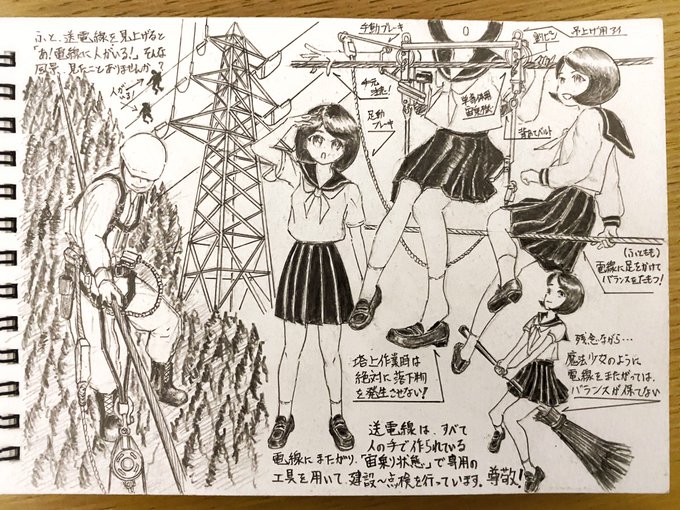 ふと、送電線を見上げると
「あ!電線に人がいる!」そんな
風景、見たことありませんか?
人が
いる!
手動ブレーキ
割ピン
吊上げ用アイ
手元
注意!
足動
ブレーキ
宙乗機
背あてベルト
(ふともも)
電線に足をかけて
バランスをたもつ!
塔上作業時は
絶対に落下物
を発生させない!
残念ながら…
魔法少女のように
電線をまたがっては、
バランスが保てない
送電線は、すべて
人の手で作られている
電線にまたがり、「宙乗り状態」で専用の
工具を用いて、建設〜点検を行っています。尊敬!